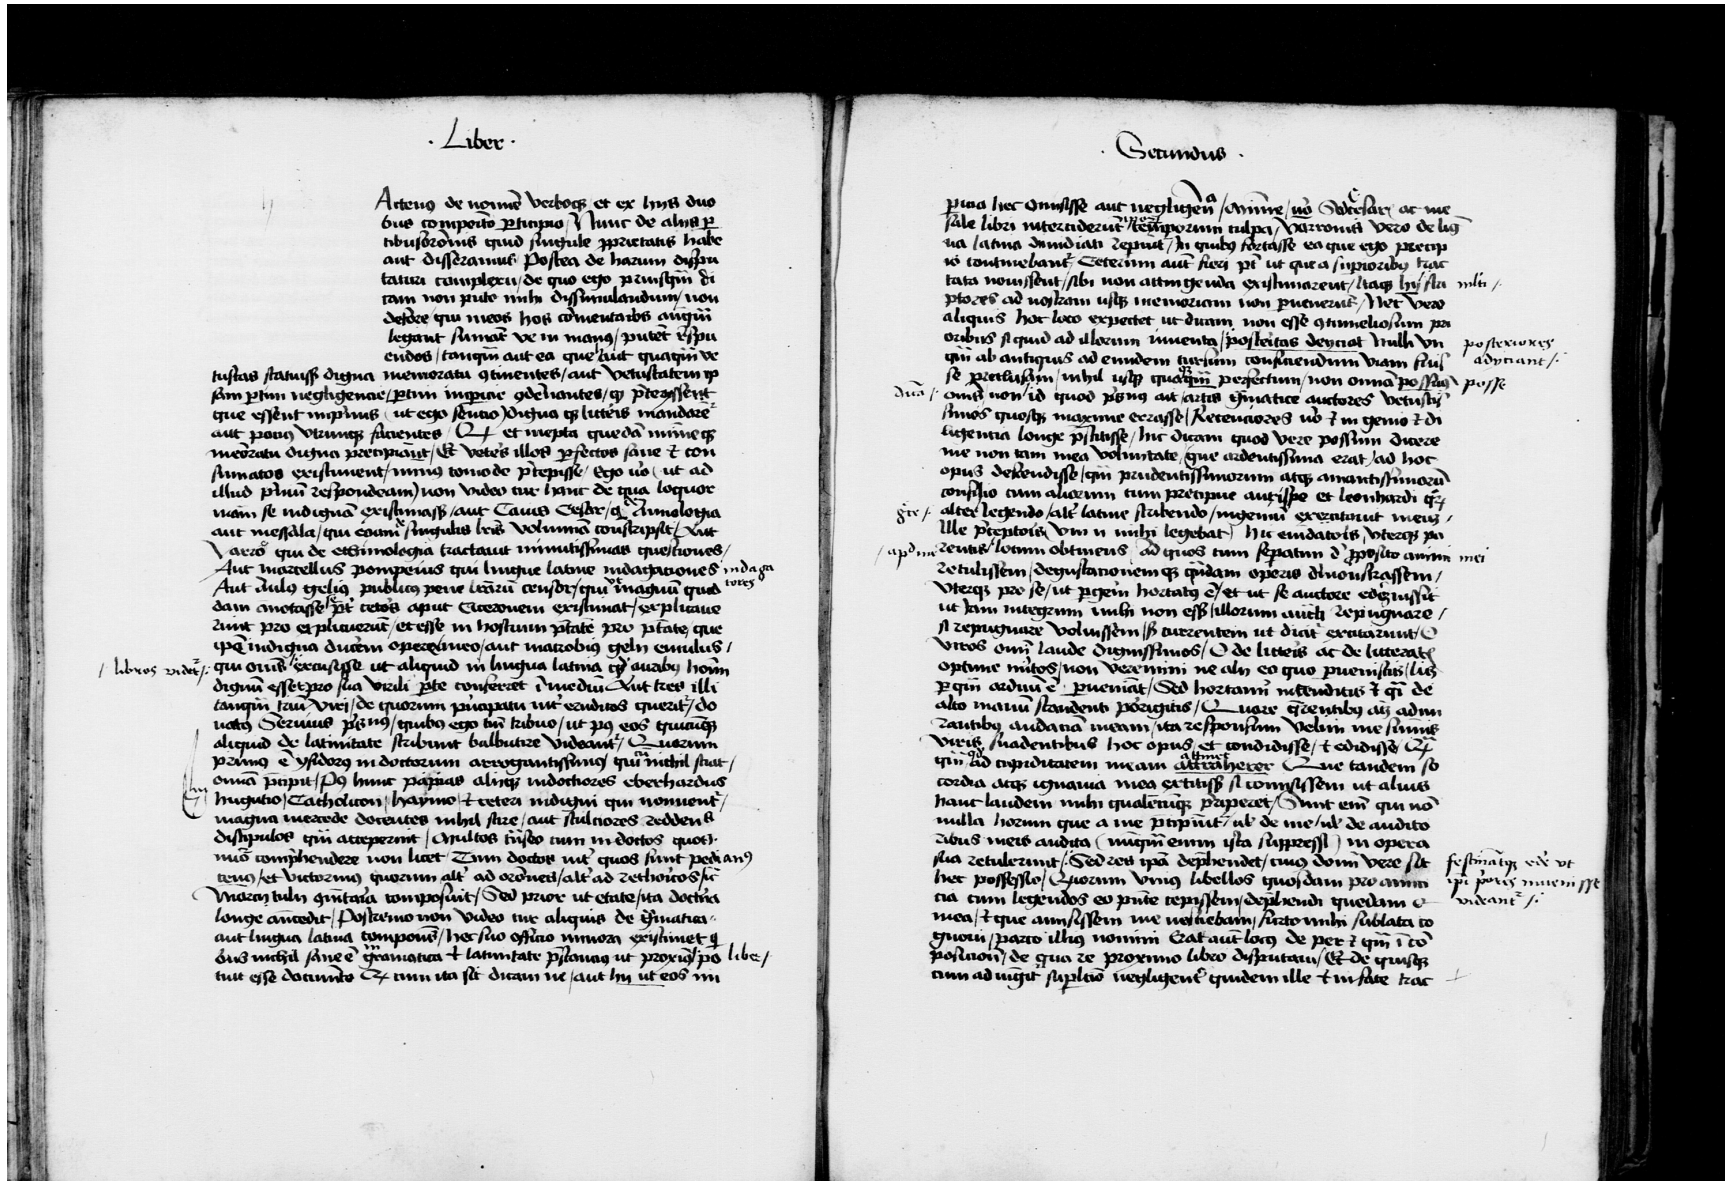 · Liber ·
Acteno de nomine verboqz et ex hiis duo
bus composito participio / Nunc de aliis par
tibus orationis quid singule proprietatis habe
ant disseramus Postea de harum dispu
taturi complexu / de quo ego priusquam di
cam non puto mihi dissimulandum / non
deesse qui meos hos commentarios antequam
legant sumant ve in manus / putent respu
endos / tanquam aut ea que aut quaquam ve
tustas statuisse digna memoratu continentes / aut vetustatem ip
sam partim negligencie / partim inopiae condemnantes / quod preterissent
que essent inprimis ( ut ego sentio ) digna que litteris mandarent
aut potius utrunque facientes / Quod et inepta quedam minimeque
memoratu digna precipiam / Et veteres illos perfectos sane et con
sumatos existiment / nimis comode precepisse / Ego vero ( ut ad
illud primum respondeam ) non video cur hanc de qua loquor
materiam se indignam existimasset / aut Caius Cesar / qui de Annologia
aut messala / qui etiam de singulis literis volumina conscripsit / Aut
Varro qui de ethimologia tractavit minutissimas questiones /
Aut martellus pompeius qui lingue latine indagationes
indaga
tores
Aut aulus gelius publicus pene litterarum censor / qui magnum quid
dam anotasse preter ceteros aput Ciceronem existimat / explicave
runt pro explicuerunt / et esse in hostium potestatem pro potestate / que
ipse indigna ducerem opere meo / aut macrobius gelii emulus /
/ libros videtur /:
qui omnes excusisse ut aliquid in lingua latina quod auribus hominum
dignum esset pro sua virili parte conferret in medium Aut tres illi
tanquam trium viri / de quorum principatu inter eruditos queritur / do
natus Servius priscianus / quibus ego tantum tribuo / ut post eos quicunque
aliquid de latinitate scribunt balbutire videantur / Quorum
primus est ysidorus indoctorum arrogantissimus / qui cum nichil sciat /
omnia precipit / Post hunc papias aliique indoctiores eberhardus
hugutio / Catholicon / haymo / et ceteri indigni qui nominentur /
magna mercede docentes nihil scire / aut stultiores reddens
discipulos quam acceperint / Multos censeo cum indoctos quos
nunc comprehendere non licet Tum doctos inter quos sunt pedi anus
tenus / et victorinus quorum alter ad orationes / alter ad rethoricos
Marci tulii commentaria composuit / Sed prior ut etate / ita doctrina
longe antecedit / Postremo non video cur aliquis de gramatica
aut lingua latina componens / hec suo officio minora existimet
bus nichil sane est in gramatica et latinitate prestancius ut proximus / po
liber /
tuit esse documento Quod cum ita sit dicam ne / aut hii ut eos im
· Secundus ·
peritia hec omisisse aut negligentia / minime / vero Sed Cesar / ac me
sale libri interciderunt temporum culpa / varronis vero de lig
ua latina dimidiati reperiuntur / In quibus fortasse ea que ego precip
io continebantur / Ceterum autem fieri potest ut que a superioribus trac
tata novissent / sibi non attingenda existimarent / Itaque hii scri
multi /
ptores ad nostram usque memoriam non pervenerunt / Nec vero
aliquis hoc loco expectet ut dicam non esse contumeliosum pri
oribus si quid ad illorum inventa / posteritas deyciat Nulli un
posteriores
adyciant /:
quam ab antiquis ad eundem cursum conficiendum viam fuis
se preclusam / nihil usque quaquam perfectum / non omnia possunt
posse
duam /:
omnes non / id quod priscianus ait / artis gramatice auctores vetustis
simos quosque maxime errasse / Recentiores vero et ingenio et di
ligencia longe prestitisse / hic dicam quod vere possum dicere
me non tam mea voluntate / que ardentissima erat / ad hoc
opus descendisse / quam prudentissimorum atque amantissimorum
consilio cum aliorum tum precipue aurispe et leonhardi
gre /:
alter legendo / alter latine scribendo / ingenium excitavit meum
Ille preceptoris vin n mihi legebat / hic emendatoris uterque pa
/ apd me
rentis / locum obtinens ad quos cum separatim de proposito animi
mei
retulissem / degustacionemque quandam operis demonstrassem /
Uterque pro se / ut pergerem hortatus est / et ut se auctore edidissem
ut iam integrum mihi non esset illorum auctoritati repugnare /
si repugnare voluissem / sed currentem ut dicitur excitarunt / O
viros omni laude dignissimos / O de litteris ac de litteratis
optime meritos / non veremini ne alii eo quo pervenistis / licet
per quam arduum est perveniant / Sed hortamini incenditis et quasi de
alto manum scandenti porrigitis / Quare querentibus atque admi
rantibus audaciam meam / ita responsum velim me summis
viris suadentibus hoc opus et condidisse / et edidisse /
quam quod ad cupiditatem meam attraherer Que tandem so
attinet
cordia atque ignavia mea extitisset si comisissem ut alius
hanc laudem mihi qualemcunque preriperet / Sunt enim qui non
nulla horum que a me precipiuntur / vel de me / vel de audito
ribus meis audita ( nunquam enim ista suppressi ) in opera
sua retulerint / Sed res ipsa deprehendet / cuius domini vere sit
festinantque edere ut
ipsi priores invenisse
videantur /:
hec possessio / Quorum unius libellos quosdam pro amici
cia cum legendos eo presente cepissem / deprehendi quedam
mea / et que amisissem me nesciebam / furto mihi sublata co
gnovi / parco illius nomini Erat autem locus de per et quam in com
posicione / de qua re proximo libro disputavi / Et de quisque
cum adiungitur superlativo negligenter quidem ille et inscite trac